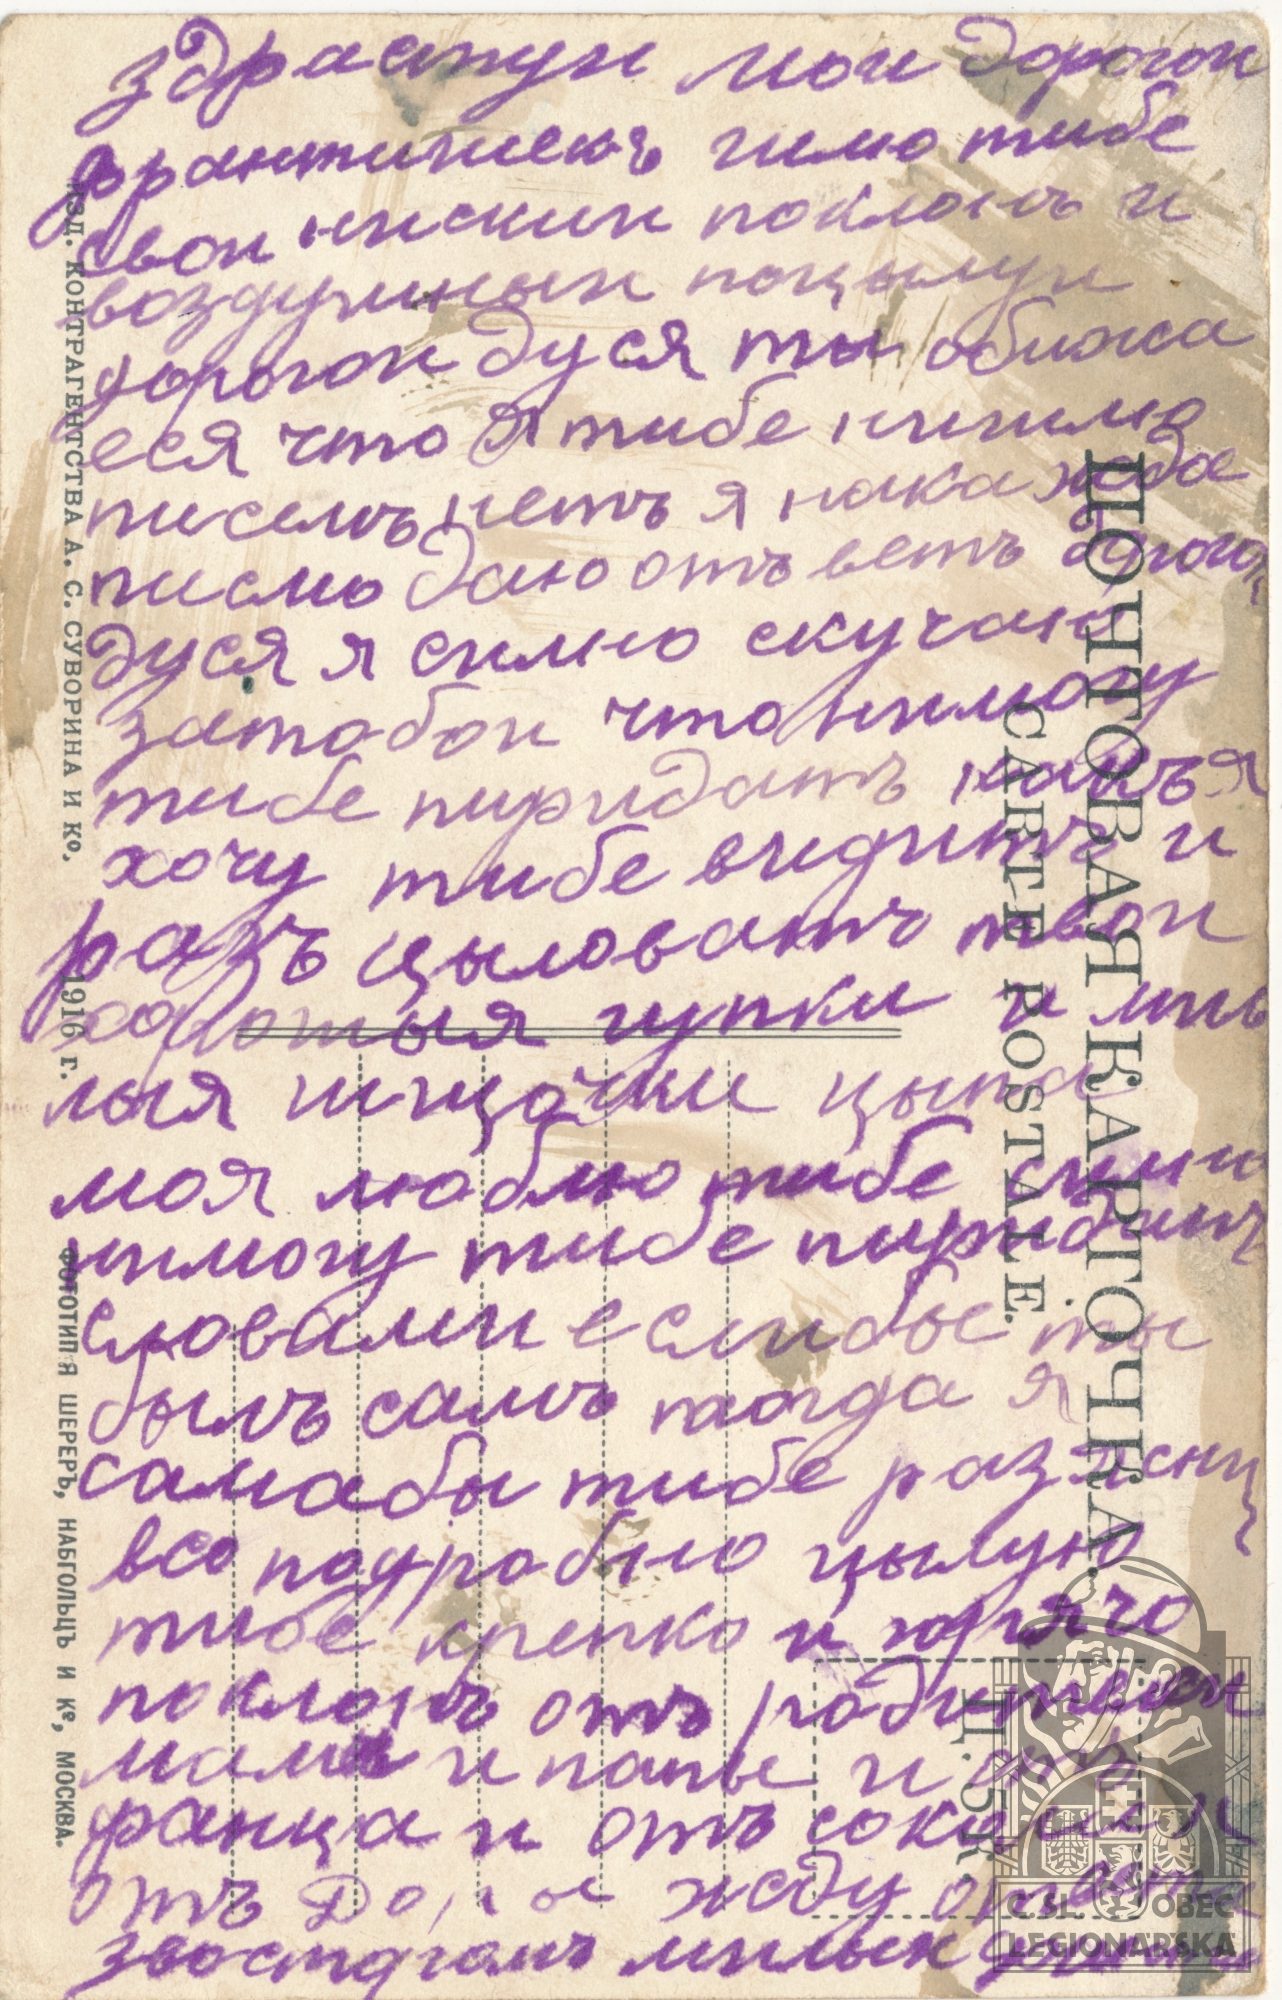 здрастуи мои дорогои
франтишекъ шлю тибе
свои нискии поклонъ и
воздушныи поцылуи
дорогои дуся ты обижа
еся что я тибе нишлю
писемъ нетъ я накаждае
писмо даю отъветъ дорогои
дуся я силно скучаю
затобои что нимогу
тибе пиридатъ какъ я
хочу тибе видитъ и
разъ цыловатъ твои
хоротыя гупки и ми
лыя щщочки цыпа
моя люблю тибе
нимогу тибе пиридатъ
словами еслибы ты
былъ самъ тогда я
самабы тибе разяснил
всо подробно цылую
тибе крепко и горячо
поклонъ отъ родитилеи
мамы и папы и отъ
франца и отъ
отъ Доры жду ответа
милыи
ПОЧТОВАЯ КАРТОЧКА.
CARTE POSTALE.
ИЗД. КОНТРАГЕНТСТВА А. С. СУВОРИНА И Ко. 1916 г.
ФОТОТИПІЯ ШЕРЕРЪ, НАБГОЛЬЦЪ И Ко, МОСКВА.
Ц. 5 К.
Č. SL. OBEC
LEGIONÁŘSKÁ